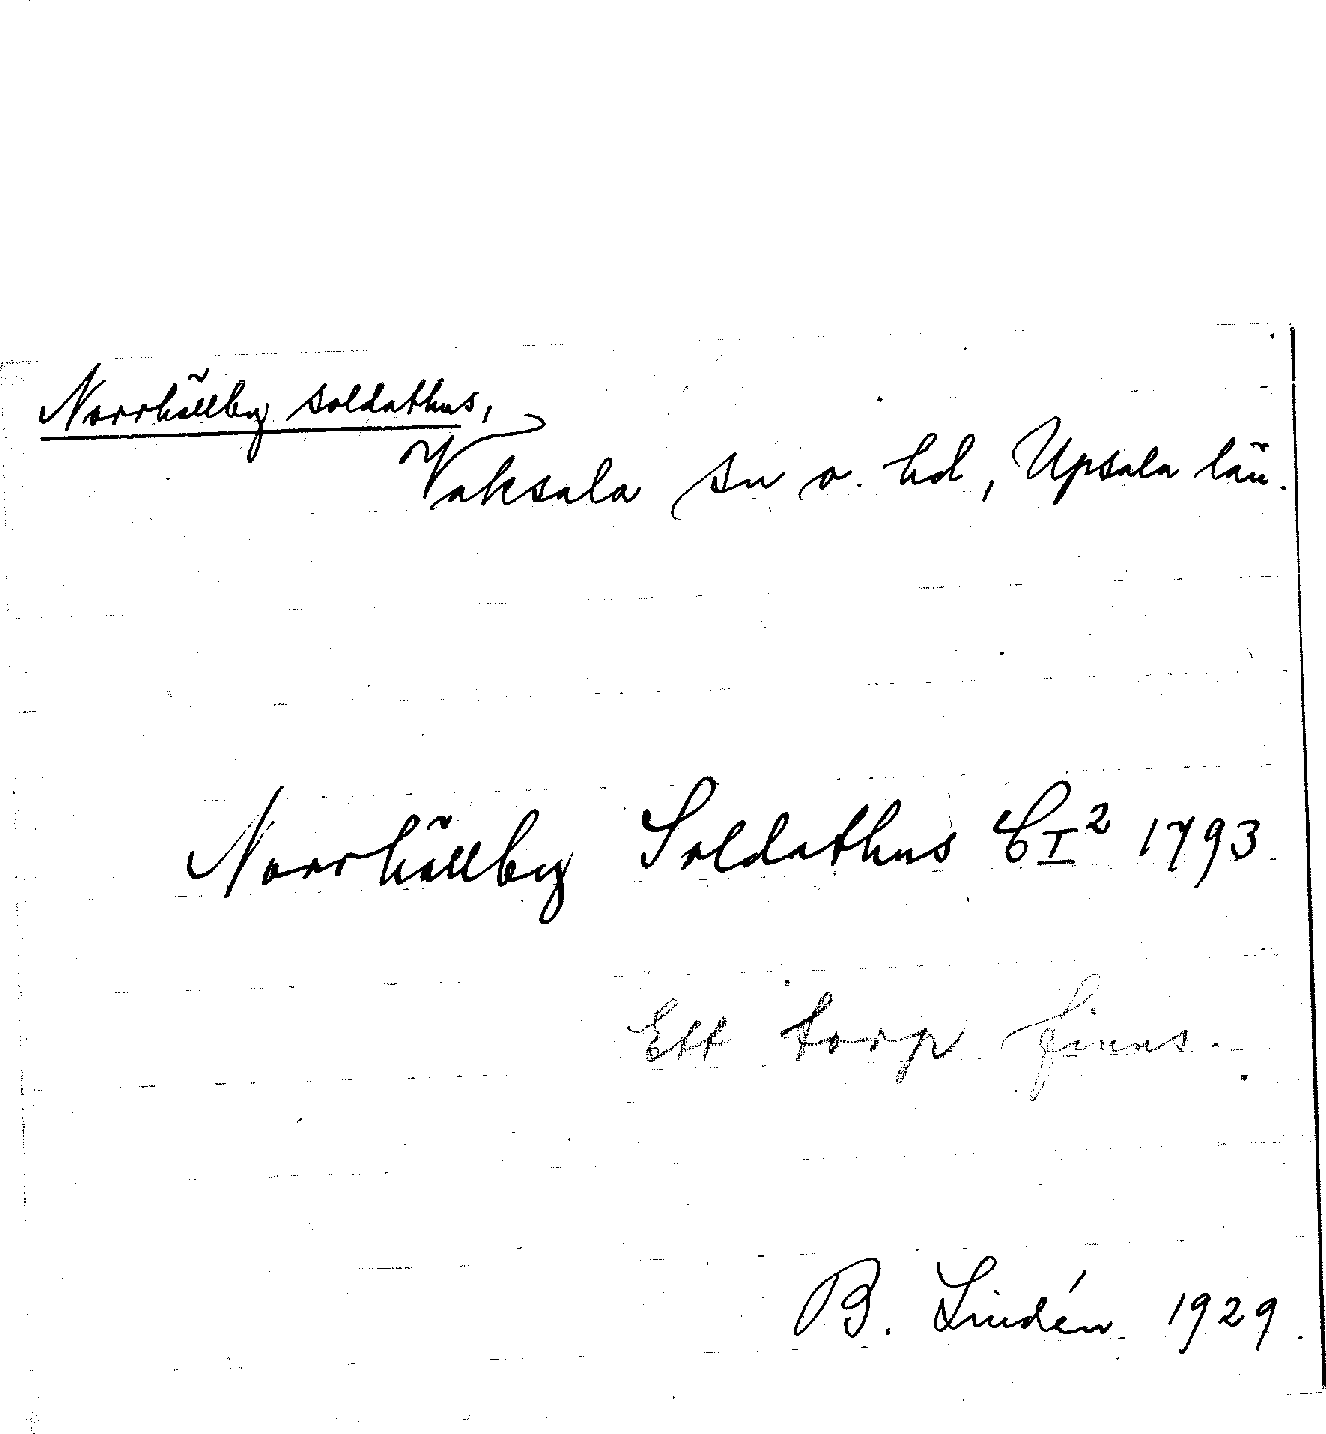 Norrhällby soldathus,
Vaksala sn o. hd, Upsala län.
Norrhällby Soldathus C I² 1793
Ett torp finns.
B. Lindén 1929.